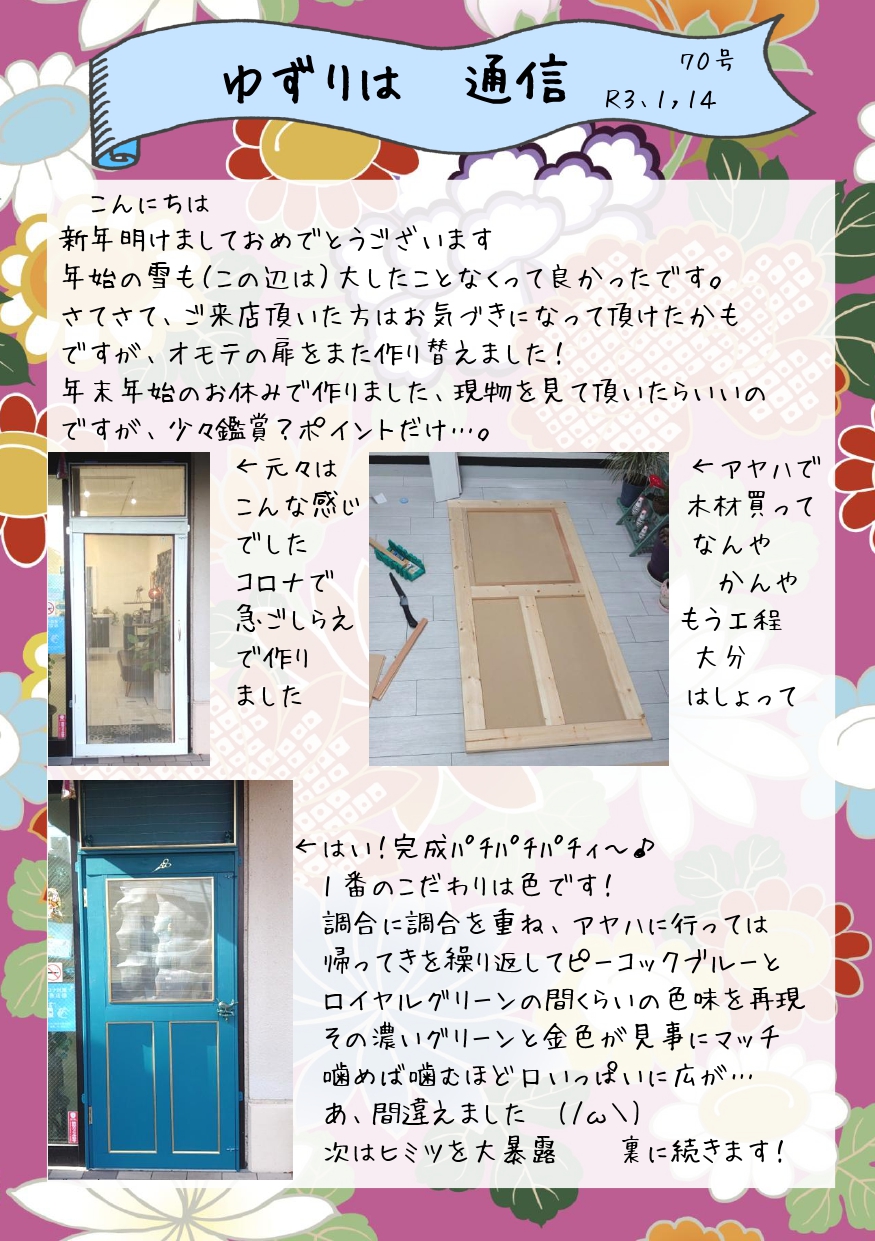 ゆずりは 通信
70号
R3、1,14
こんにちは
新年明けましておめでとうございます
年始の雪も(この辺は)大したことなくって良かったです。
さてさて、ご来店頂いた方はお気づきになって頂けたかも
ですが、オモテの扉をまた作り替えました!
年末年始のお休みで作りました、現物を見て頂いたらいいの
ですが、少々鑑賞?ポイントだけ…。
←元々は
こんな感じ
でした
コロナで
急ごしらえ
で作り
ました
←アヤハで
木材買って
なんや
かんや
もう工程
大分
はしょって
←はい!完成パチパチパチィ〜♪
1番のこだわりは色です!
調合に調合を重ね、アヤハに行っては
帰ってきを繰り返してピーコックブルーと
ロイヤルグリーンの間くらいの色味を再現
その濃いグリーンと金色が見事にマッチ
噛めば噛むほど口いっぱいに広が…
あ、間違えました (/ω\)
次はヒミツを大暴露 裏に続きます!